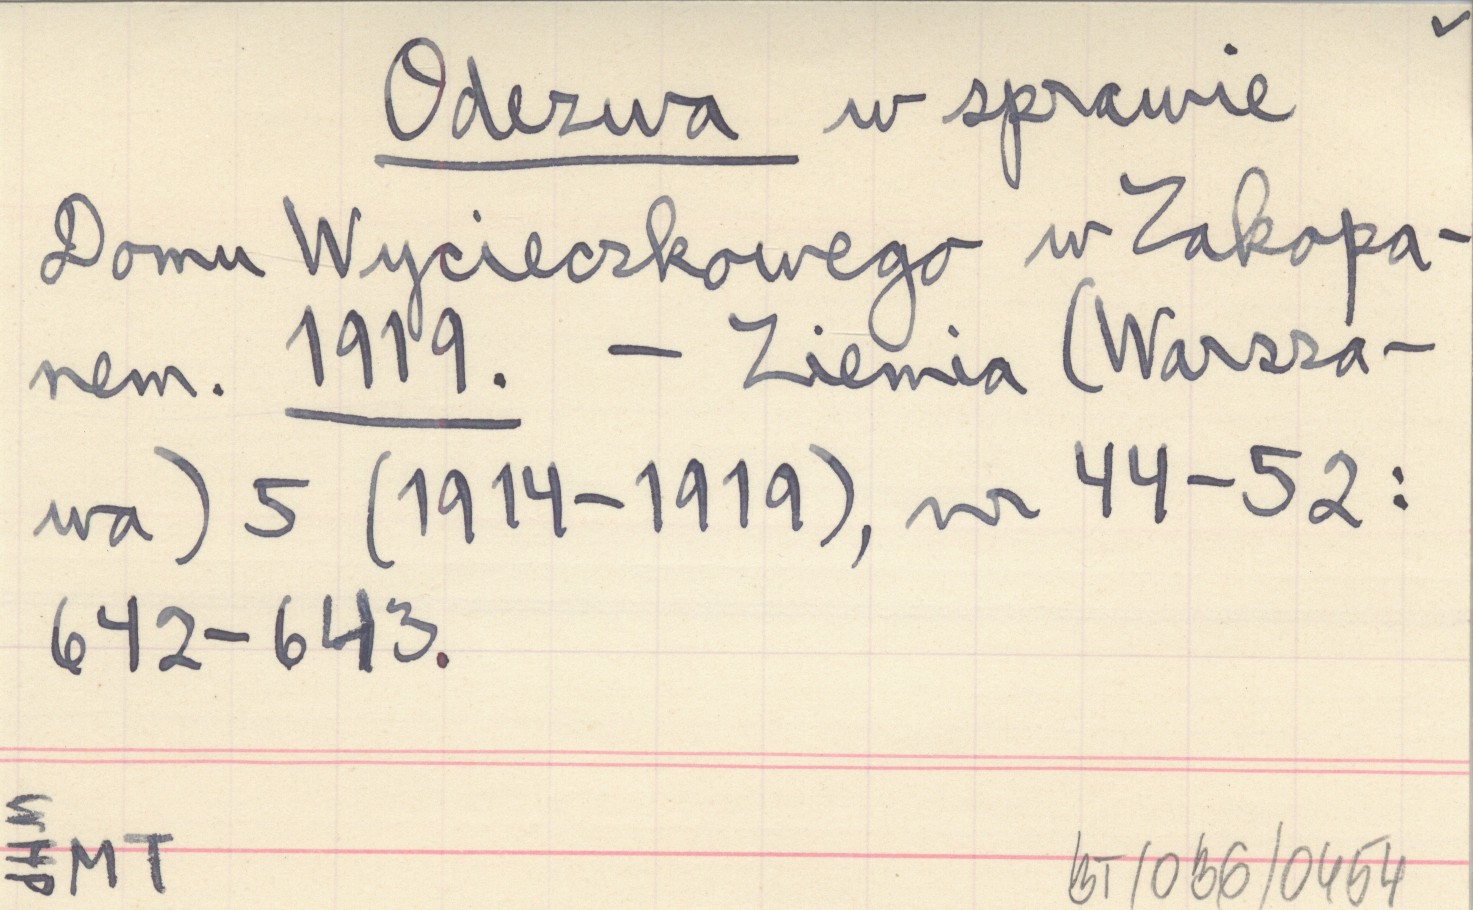 Odezwa w sprawie
Domu Wycieczkowego w Zakopa-
nem. 1919. – Ziemia (Warsza-
wa) 5 (1914–1919), nr 44–52:
642–643.
MT